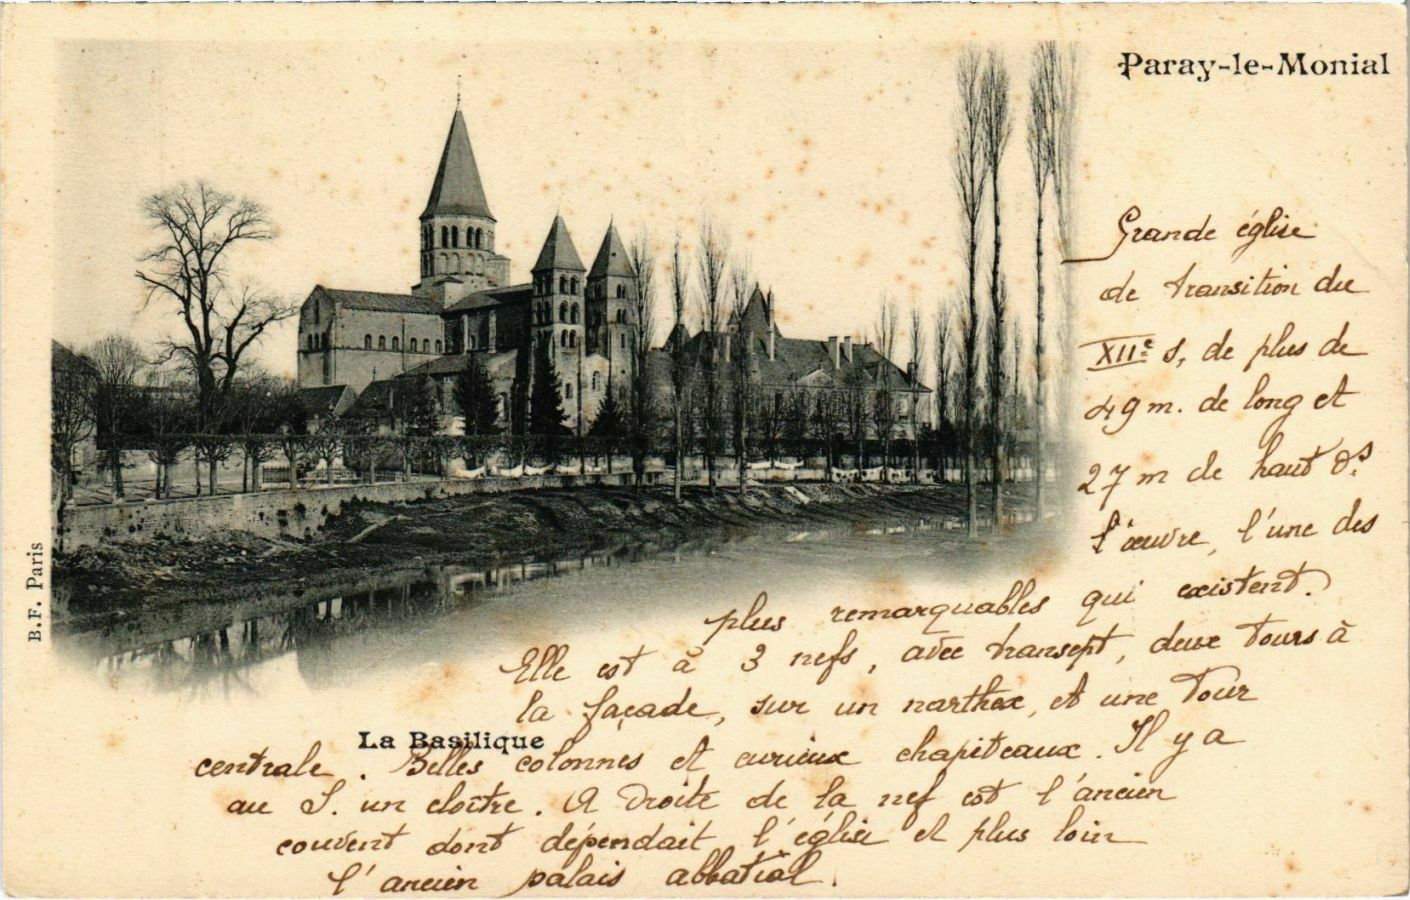 Paray-le-Monial
Grande église
de transition du
XIIe s, de plus de
49 m. de long et
27 m de haut ds
l'œuvre, l'une des
plus remarquables qui existent.
Elle est à 3 nefs, avec transept, deux tours à
la façade, sur un narthex, et une tour
La Basilique
centrale. Belles colonnes et curieux chapiteaux. Il y a
au S. un cloître. A droite de la nef est l'ancien
couvent dont dépendait l'église et plus loin
l'ancien palais abbatial.
B.F. Paris